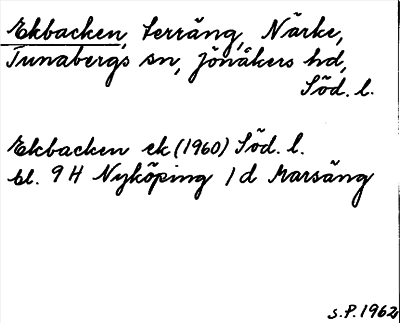 Ekbacken, terräng, Närke,
Tunabergs sn, Jönåkers hd,
Söd. l.
Ekbacken ek (1960) Söd. l.
bl. 9 H Nyköping 1 d Marsäng
S.P. 1962